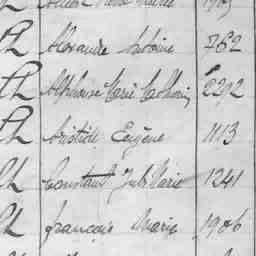 Ch Alexandre Antoine 762
Ch Alphonse Marie 2292
Ch Aristide Eugène 1113
Ch Constant Jules Marie 1241
Ch François Marie 1906